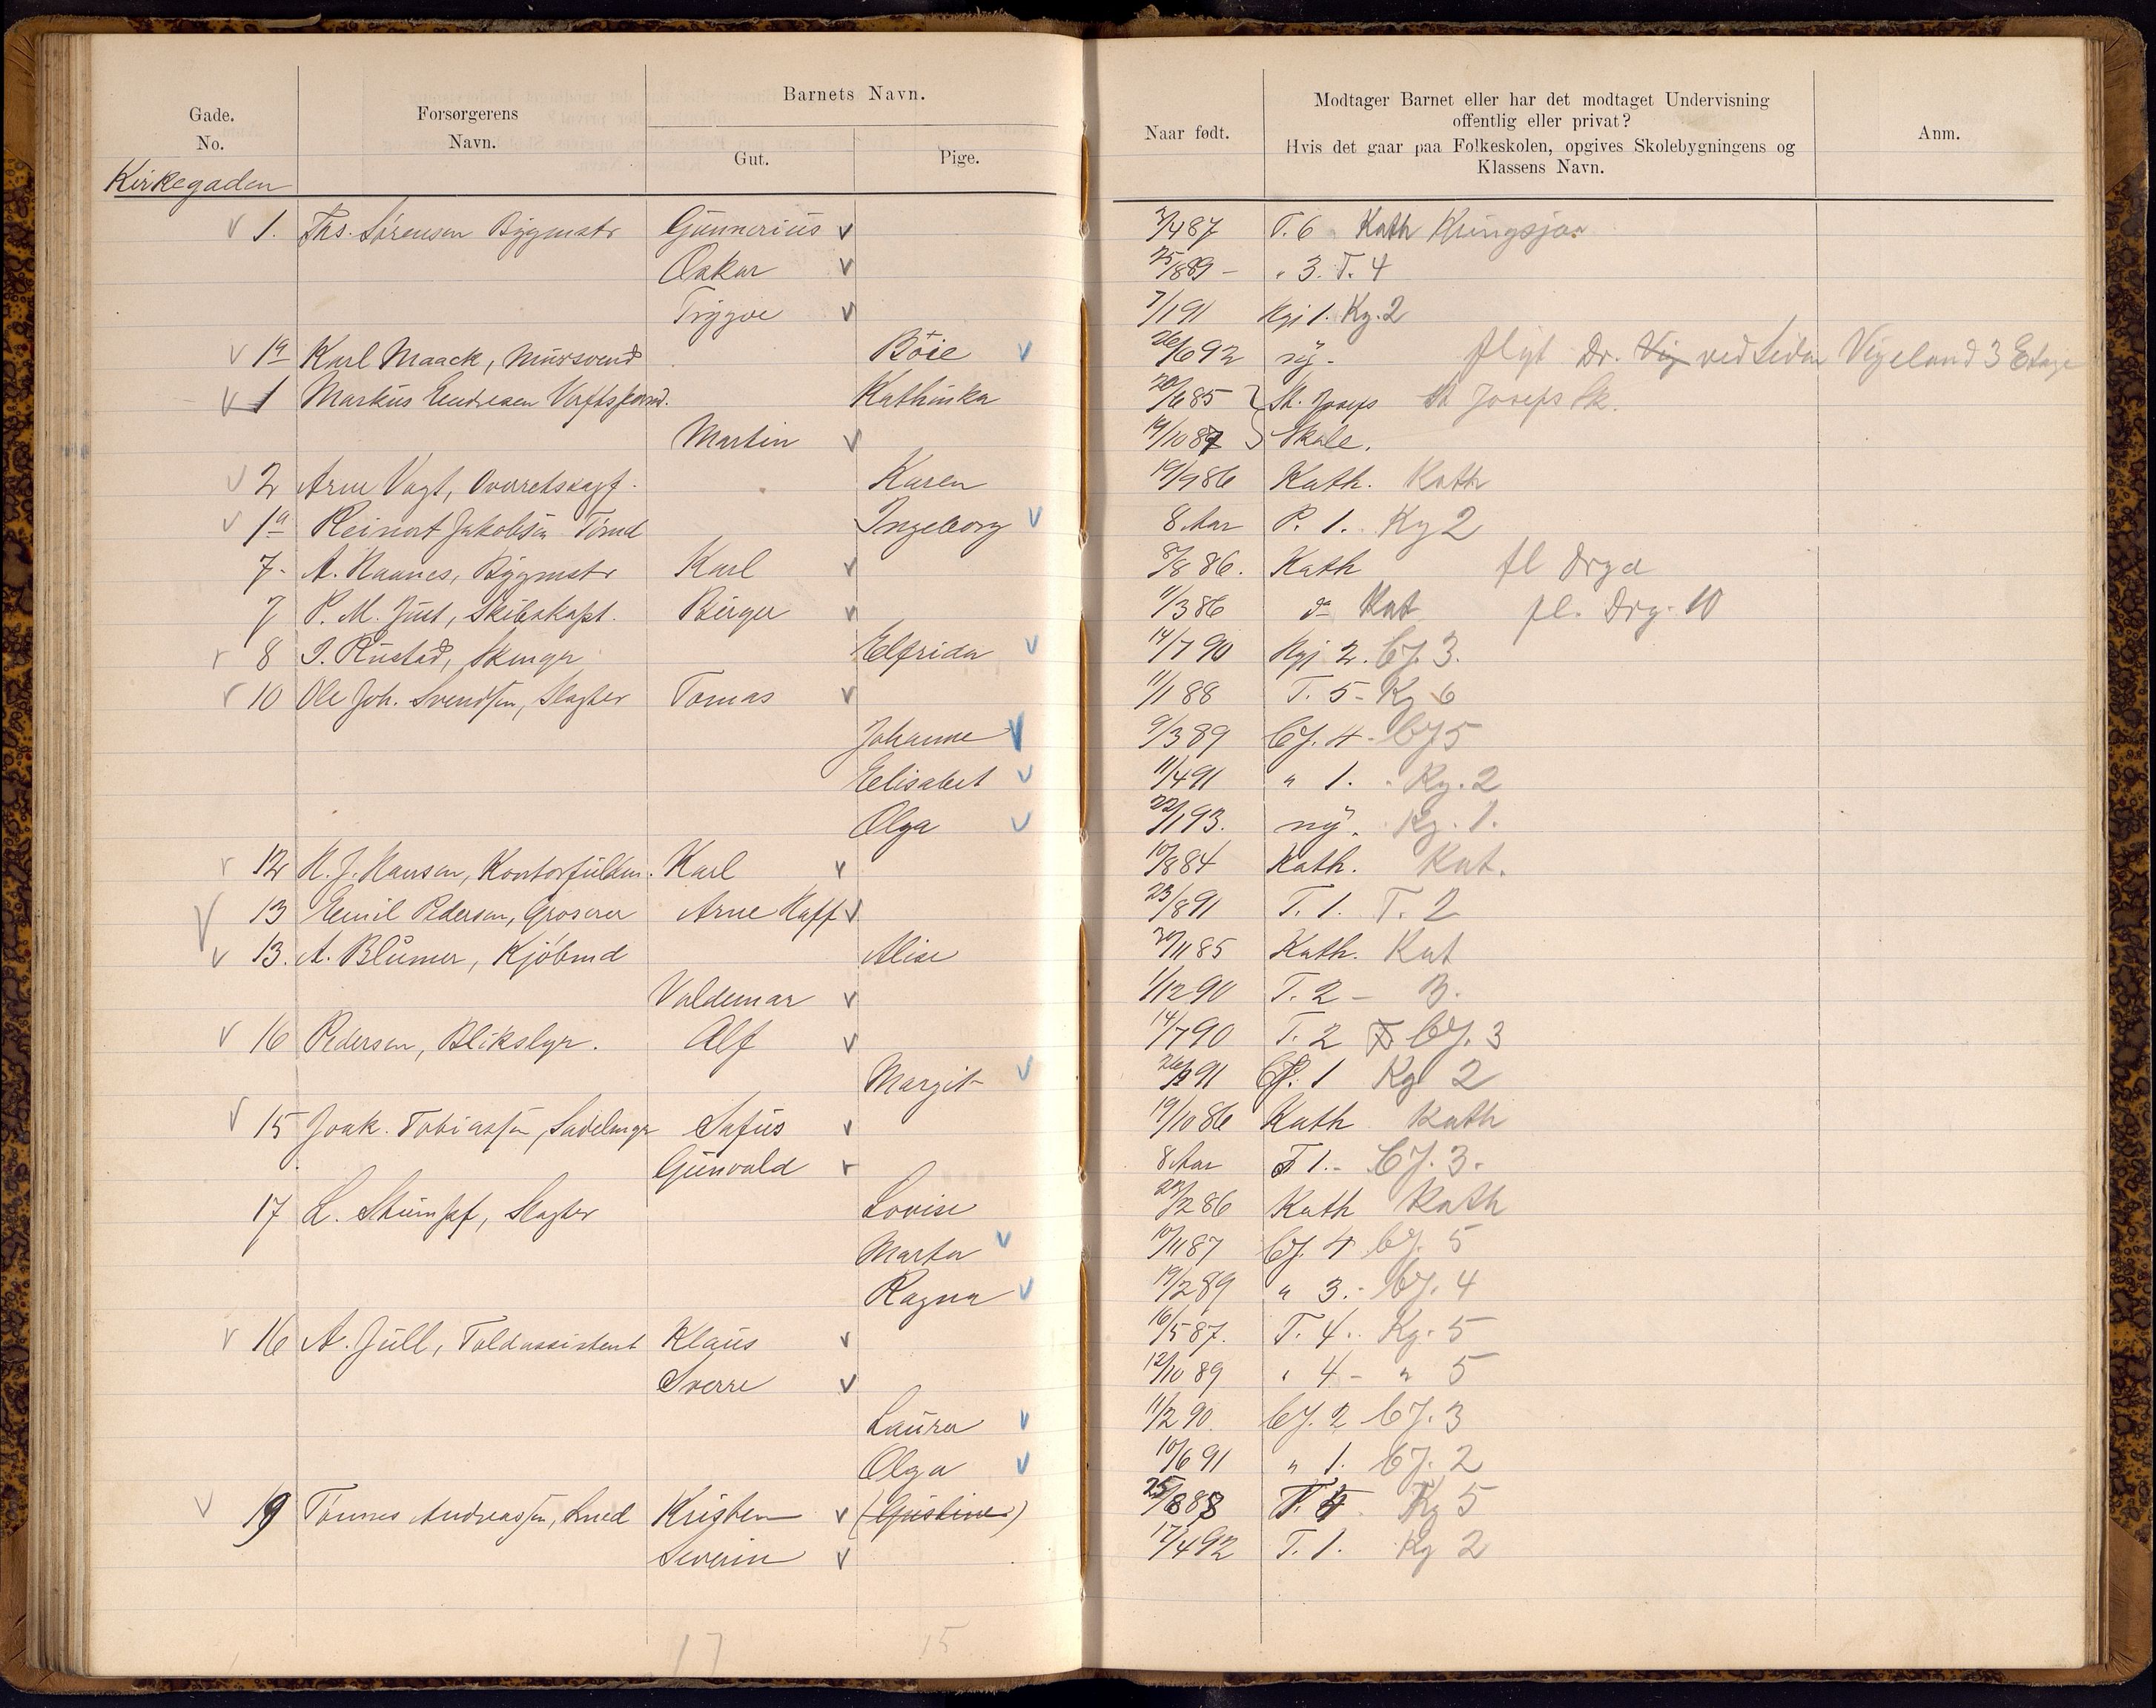 Gade.
No.
Forsørgerens
Navn.
Barnets Navn.
Gut.
Pige.
Naar født.
Modtager Barnet eller har det modtaget Undervisning
offentlig eller privat?
Hvis det gaar paa Folkeskolen, opgives Skolebygningens og
Klassens Navn.
Anm.
Kirkegaden
1. Ths. Sørensen Bygmstr Gunnerius v 2/4 87 T. 6 Kath
Oskar v 25/8 89 - " 3. T. 4
Trygve v 7/1 91 Kgj 1. Kg. 2
1a Karl Maack, Mursvend Böie v 26/6 92 ny. flyt Dr. Vig ved Siden Vigeland 3 Etage
1 Markus Endresen Kathinka 20/6 85 St. Josefs St Josefs Sk.
Martin v 19/10 87 Skole.
2 Arne Vagt, Overretssagf. Karen 19/9 86 Kath. Kath
1a Reinert Jakobsen Tømd Ingeborg v 8 Aar P. 1. Kg 2
7. A. Haanes, Bygmstr Karl v 8/8 86. Kath fl
7 P. M. Juul, Skibskapt. Birger v 11/3 86 do Kat fl. Drg. 10
8 J. Rustad, Skmgr Elfrida v 14/7 90 Kgj 2. Cf. 3.
10 Ole Joh. Svendsen, Slagter Tomas v 11/1 88 T. 5 - Kg 6
Johanne v 9/3 89 Cf. 4 - Cf 5
Elisabet v 11/4 91 " 1. - Kg. 2
Olga v 22/1 93. ny. Kg. 1.
12 H. J. Hansen, Kontorfuldm. Karl v 10/8 84 Kath. Kat.
13 Emil Pedersen, Groserer Arne Kaff v 23/8 91 T. 1. T. 2
13. A. Blumer, Kjøbmd Alise 20/11 85 Kath. Kat
Valdemar v 1/12 90 T. 2 - 3.
16 Pedersen, Blikslgr. Alf v 14/7 90 T. 2 Cf. 3
Margit v Cf. 1 Kg 2
15 Joak. Tobiassen, Sadelmgr Sofus v 19/10 86 Kath Kath
Gunvald v 8 Aar T 1. - Cf. 3.
17 L. Stumpf, Slagter Lovise 2 86 Kath Kath
Marta v 10/11 87 Cf. 4 Cf. 5
Ragna v 19/2 89 " 3. - Cf. 4
16 A. Juell, Toldassistent Klaus v 16/5 87. T. 4. Kg. 5
Sverre v 12/10 89 " 4 - " 5
Laura v 11/2 90. Cf. 2 Cf. 3
Olga v 10/6 91 " 1. Cf. 2
19 Tønnes Andreassen, Smed Kristen v (Gustine) 25/8 88 T. 4 Kg 5
Severin v 17/4 92 T. 1. Kg 2
17 15